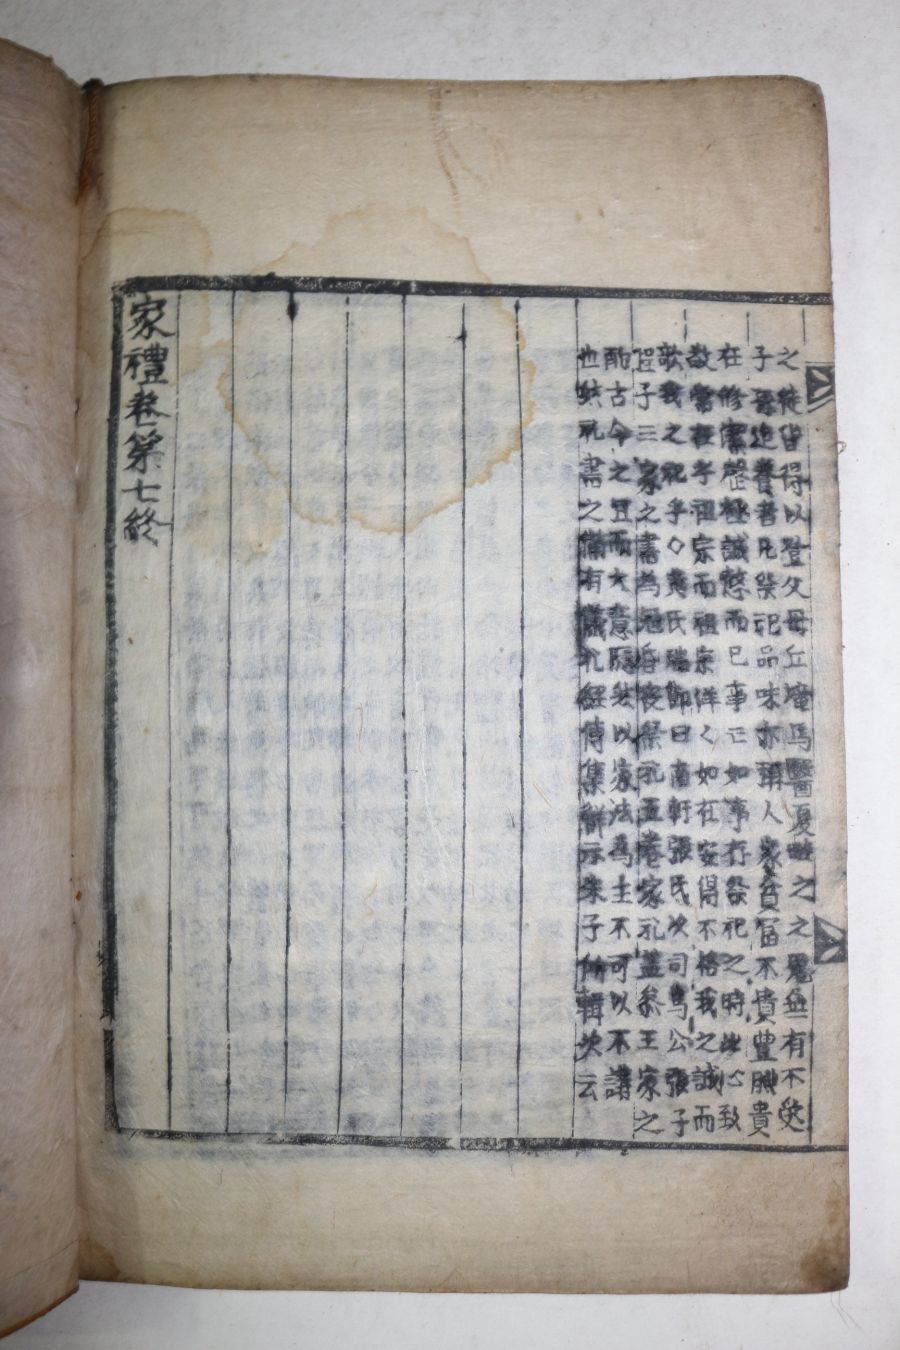 之徒皆得以登父母丘壠馬醫夏畦之之鬼無有不受
子孫追養者凡祭祀品味亦稱人家貧富不貴豐腆貴
在修潔罄極誠慤而已事亡如事存祭祀之時此心致
敬常在乎祖宗而祖宗洋〻如在安得不格我之誠而
歆我之祀乎○黃氏瑞節曰南軒張氏次司馬公張子
程子三家之書為冠昏喪祭礼五卷家礼盖參王家之
酌古今之宜而大意隱然以宗法為主不可以不講
也然礼書之備有儀礼經傳集解示朱子所輯次云
家禮卷第七終